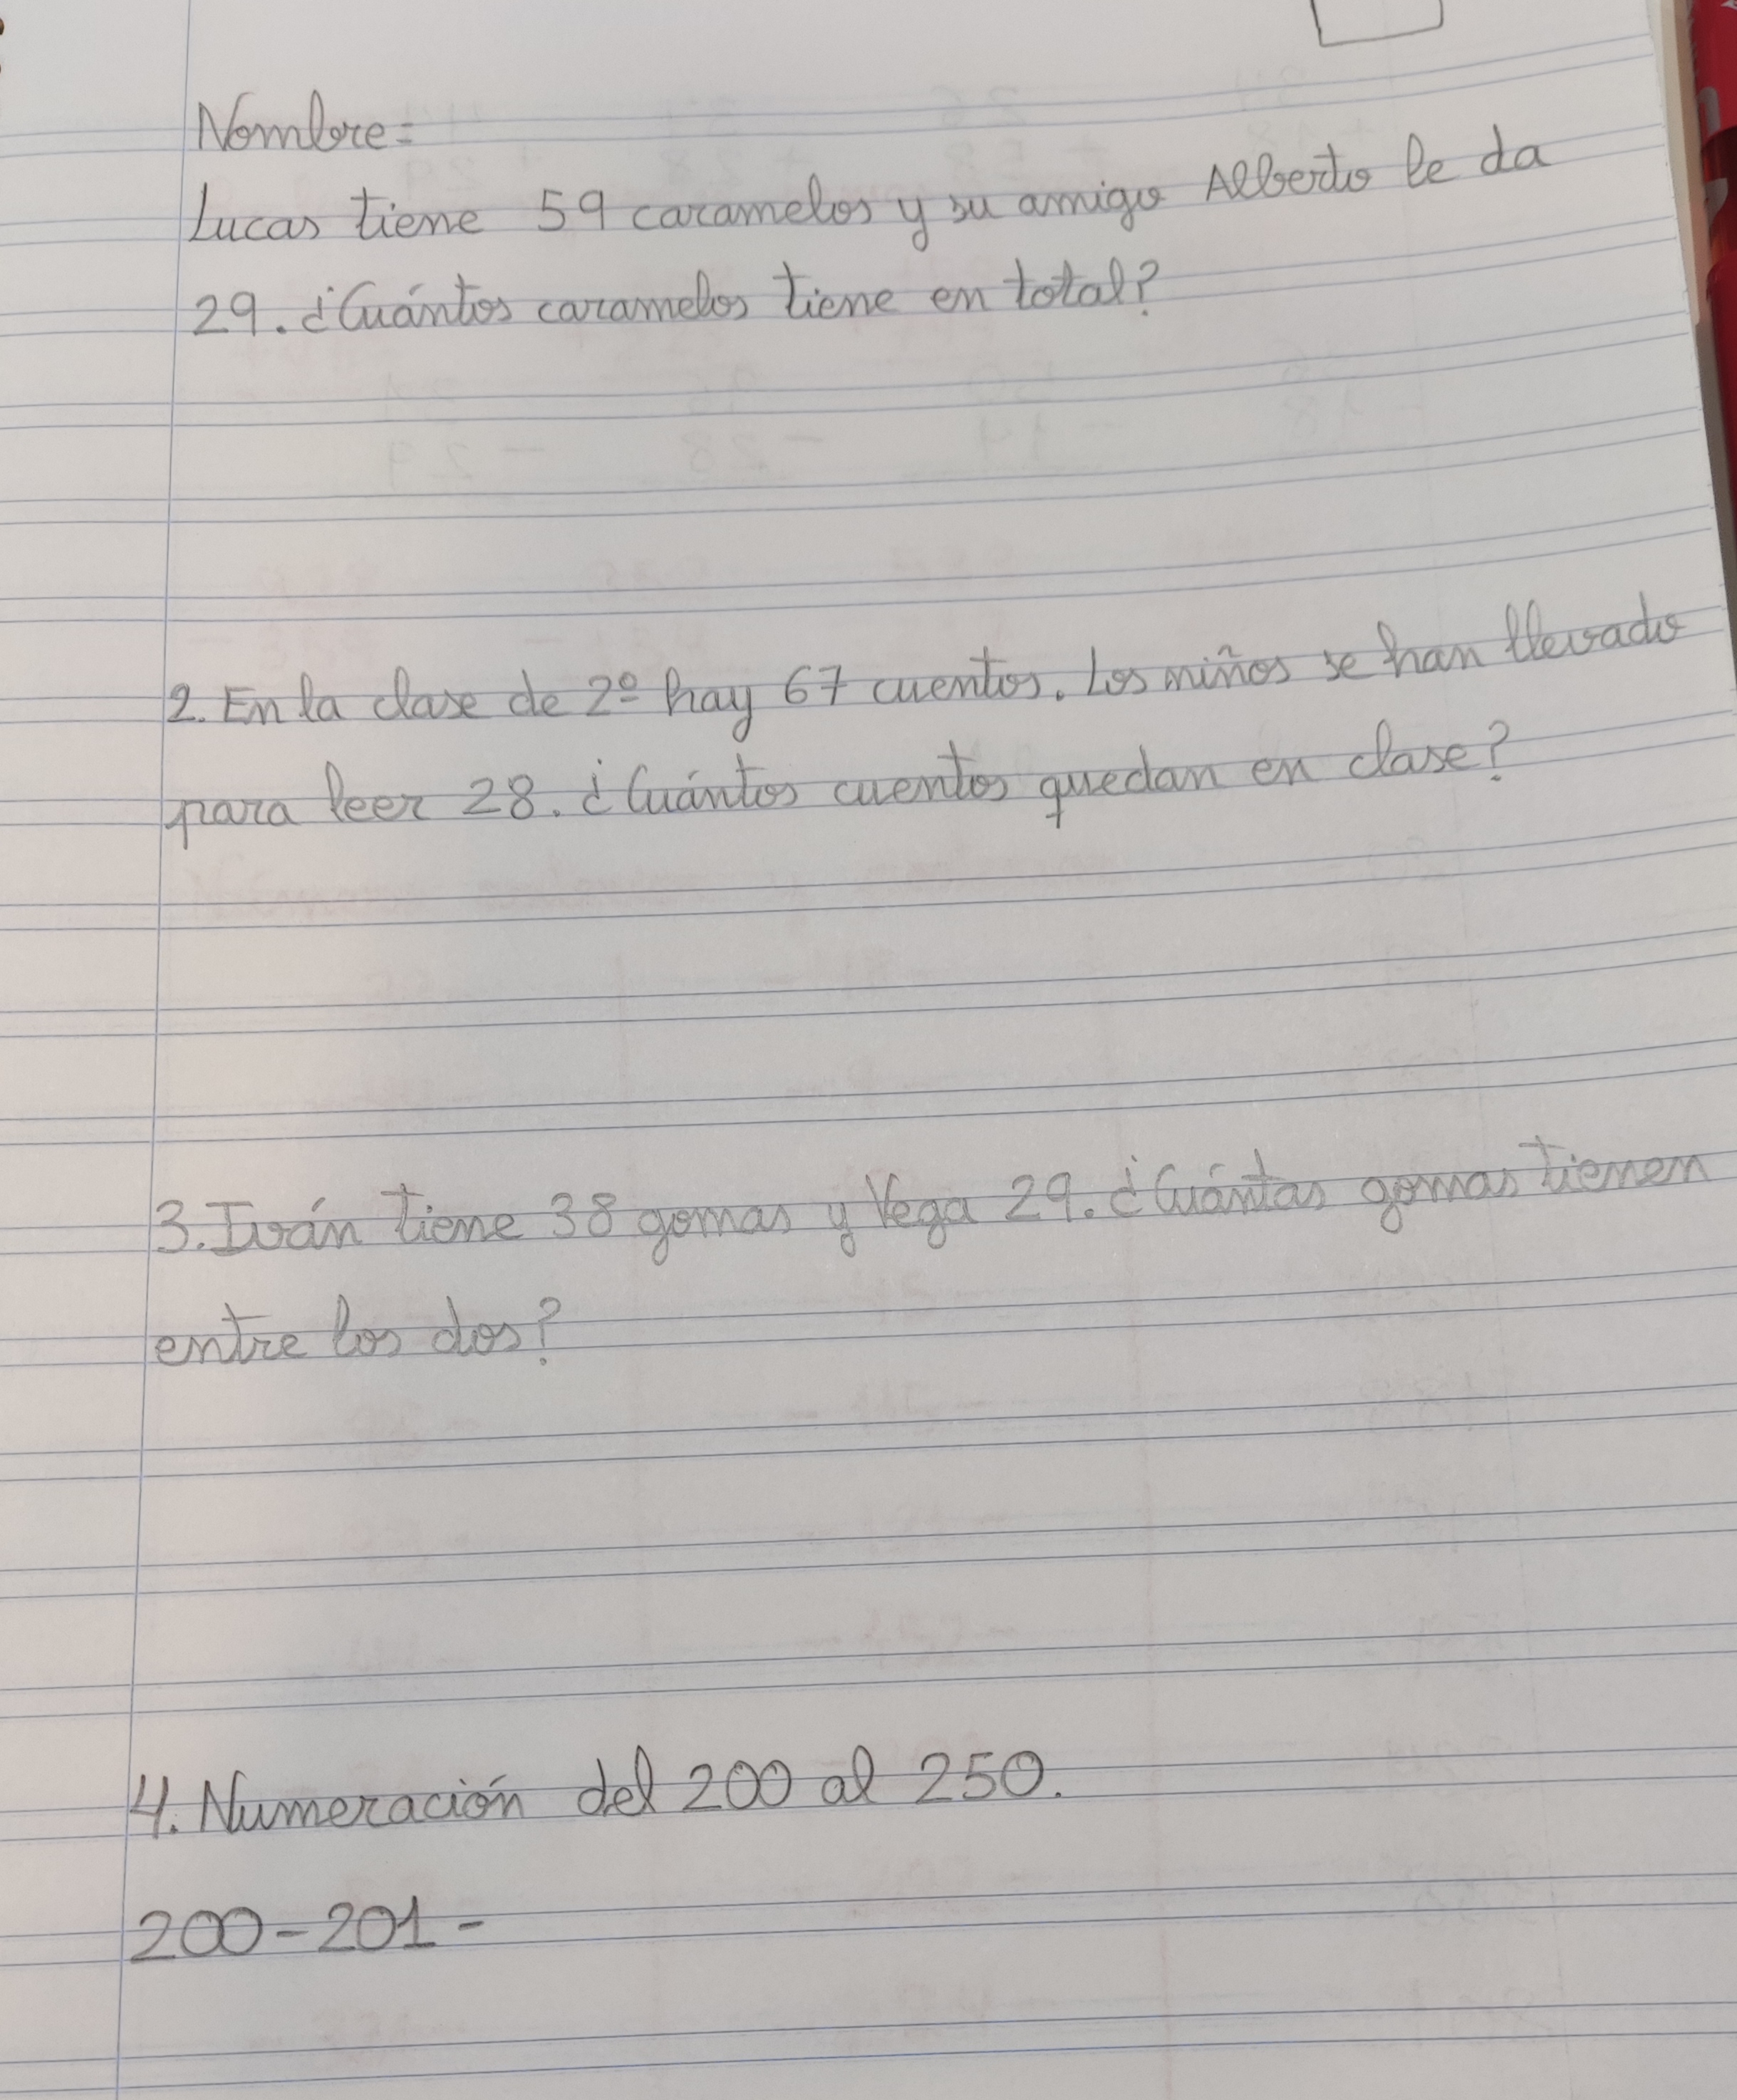 Nombre=
Lucas tiene 59 caramelos y su amigo Alberto le da
29. ¿Cuántos caramelos tiene en total?
2. En la clase de 2º hay 67 cuentos. Los niños se han llevado
para leer 28. ¿Cuántos cuentos quedan en clase?
3. Iván tiene 38 gomas y Vega 29. ¿Cuántas gomas tienen
entre los dos?
4. Numeración del 200 al 250.
200-201-